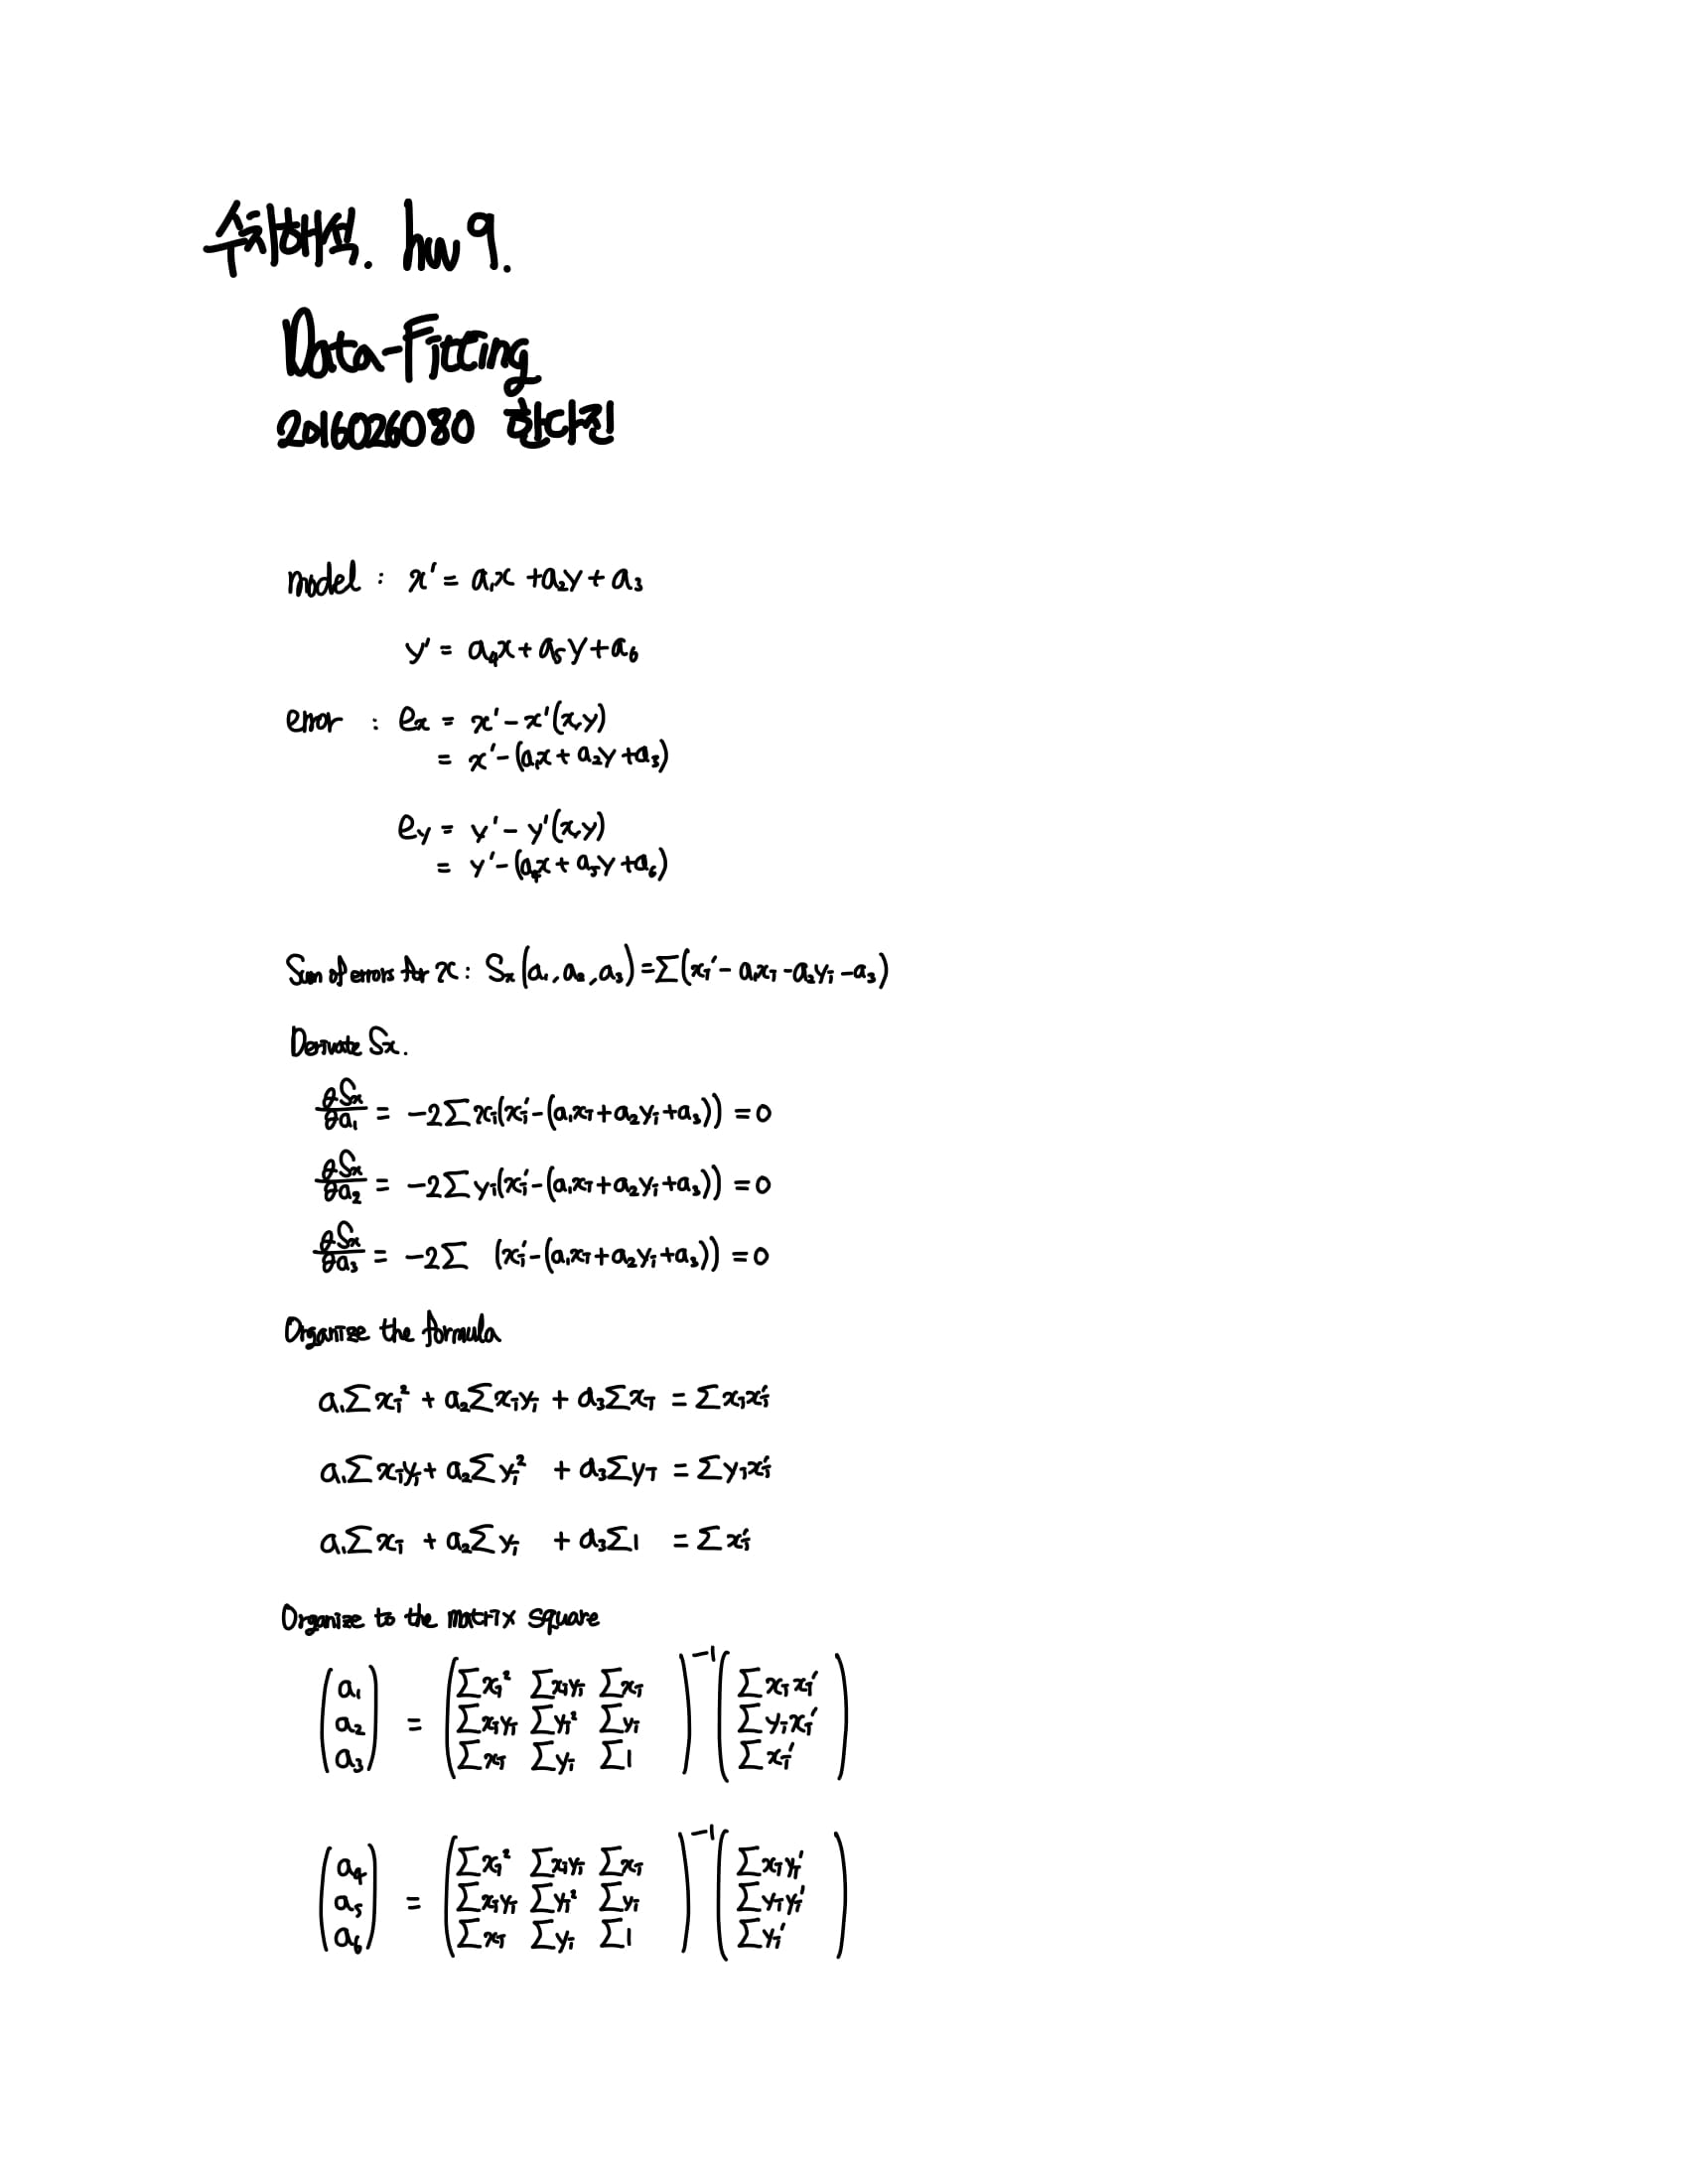 수치해석. hw 9.
Data-Fitting
2016026080 한다진
model : x' = a₁x + a₂y + a₃
y' = a₄x + a₅y + a₆
error : eₓ = x' - x'(x,y)
= x' - (a₁x + a₂y + a₃)
e_y = y' - y'(x,y)
= y' - (a₄x + a₅y + a₆)
Sum of errors for x : Sₓ(a₁, a₂, a₃) = ∑(xᵢ' - a₁xᵢ - a₂yᵢ - a₃)
Derivate Sₓ.
∂Sₓ/∂a₁ = -2∑xᵢ(xᵢ' - (a₁xᵢ + a₂yᵢ + a₃)) = 0
∂Sₓ/∂a₂ = -2∑yᵢ(xᵢ' - (a₁xᵢ + a₂yᵢ + a₃)) = 0
∂Sₓ/∂a₃ = -2∑ (xᵢ' - (a₁xᵢ + a₂yᵢ + a₃)) = 0
Organize the formula
a₁∑xᵢ² + a₂∑xᵢyᵢ + a₃∑xᵢ = ∑xᵢxᵢ'
a₁∑xᵢyᵢ + a₂∑yᵢ² + a₃∑yᵢ = ∑yᵢxᵢ'
a₁∑xᵢ + a₂∑yᵢ + a₃∑1 = ∑xᵢ'
Organize to the matrix square
(a₁ a₂ a₃) = (∑xᵢ² ∑xᵢyᵢ ∑xᵢ ∑xᵢyᵢ ∑yᵢ² ∑yᵢ ∑xᵢ ∑yᵢ ∑1)⁻¹ (∑xᵢxᵢ' ∑yᵢxᵢ' ∑xᵢ')
(a₄ a₅ a₆) = (∑xᵢ² ∑xᵢyᵢ ∑xᵢ ∑xᵢyᵢ ∑yᵢ² ∑yᵢ ∑xᵢ ∑yᵢ ∑1)⁻¹ (∑xᵢyᵢ' ∑yᵢyᵢ' ∑yᵢ')